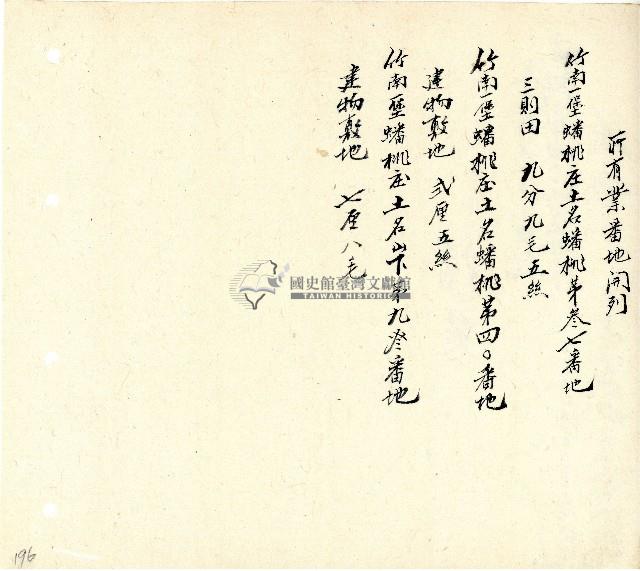 所有業番地開列
竹南一堡蟠桃庄土名蟠桃第叁七番地
三則田 九分九毛五絲
竹南一堡蟠桃庄土名蟠桃第四〇番地
建物敷地 弍厘五絲
竹南一堡蟠桃庄土名山下第九番地
建物敷地 七厘八毛
國史館臺灣文獻館
TAIWAN HISTORICA
196